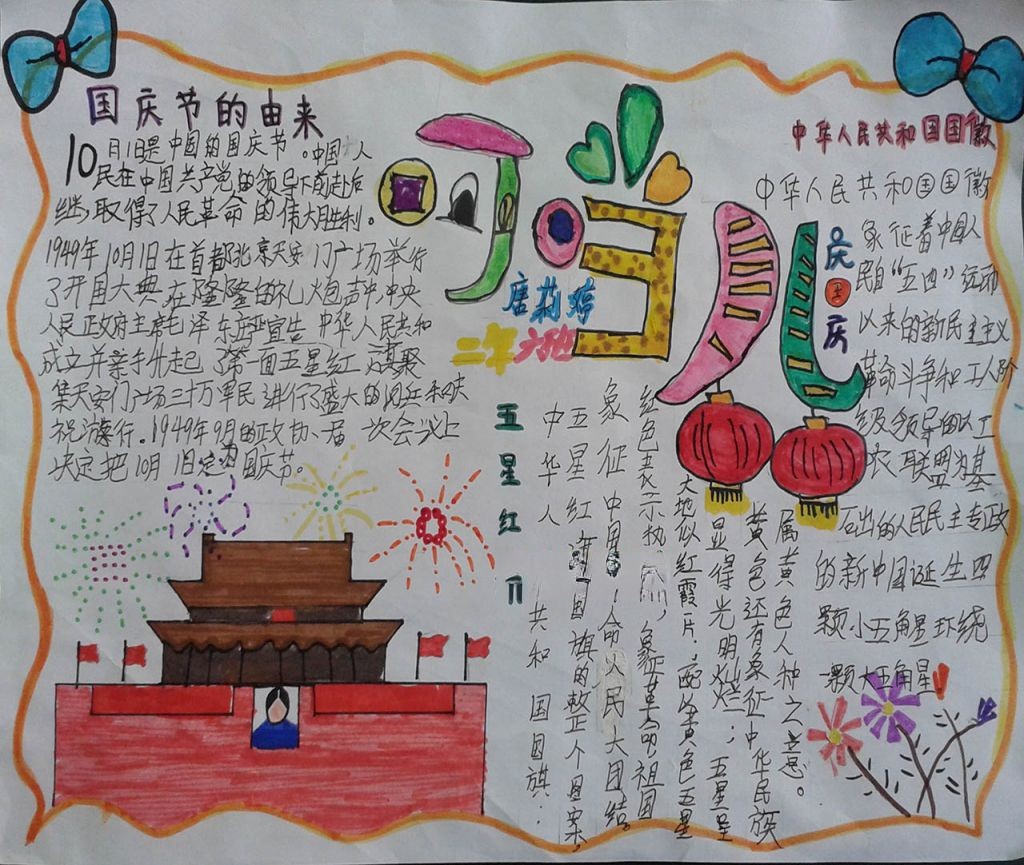 国庆节的由来
10月1日是中国的国庆节。中国人
民在中国共产党的领导下前赴后
继,取得了人民革命的伟大胜利。
1949年10月1日在首都北京天安门广场举行
了开国大典在隆隆的礼炮声中,中央
人民政府主席毛泽东庄严宣告中华人民共和
成立并亲手升起了第一面五星红
集天安门广场三十万军民进行了盛大的阅兵和庆
祝游行.1949年9月的政协一届一次会议上
决定把10月1日定为国庆节。
唐莉婷
二年六班
庆国庆
中华人民共和国国徽
中华人民共和国国徽
象征着中国人
民自“五四”运动
以来的新民主主义
革命斗争和工人阶
级领导的以工
农联盟为基
石出的人民民主专政
的新中国诞生四
颗小五角星环绕
一颗大五角星!
五星红
中华人 共和 国国旗:
五星红 国旗的整个图案,
象征中国 人民大团结。
红色表示热 ,象征革命,祖国
大地似红霞片,配以黄色五星
显得光明灿烂;五星呈
黄色还有象征中华民族
属黄色人种之意。